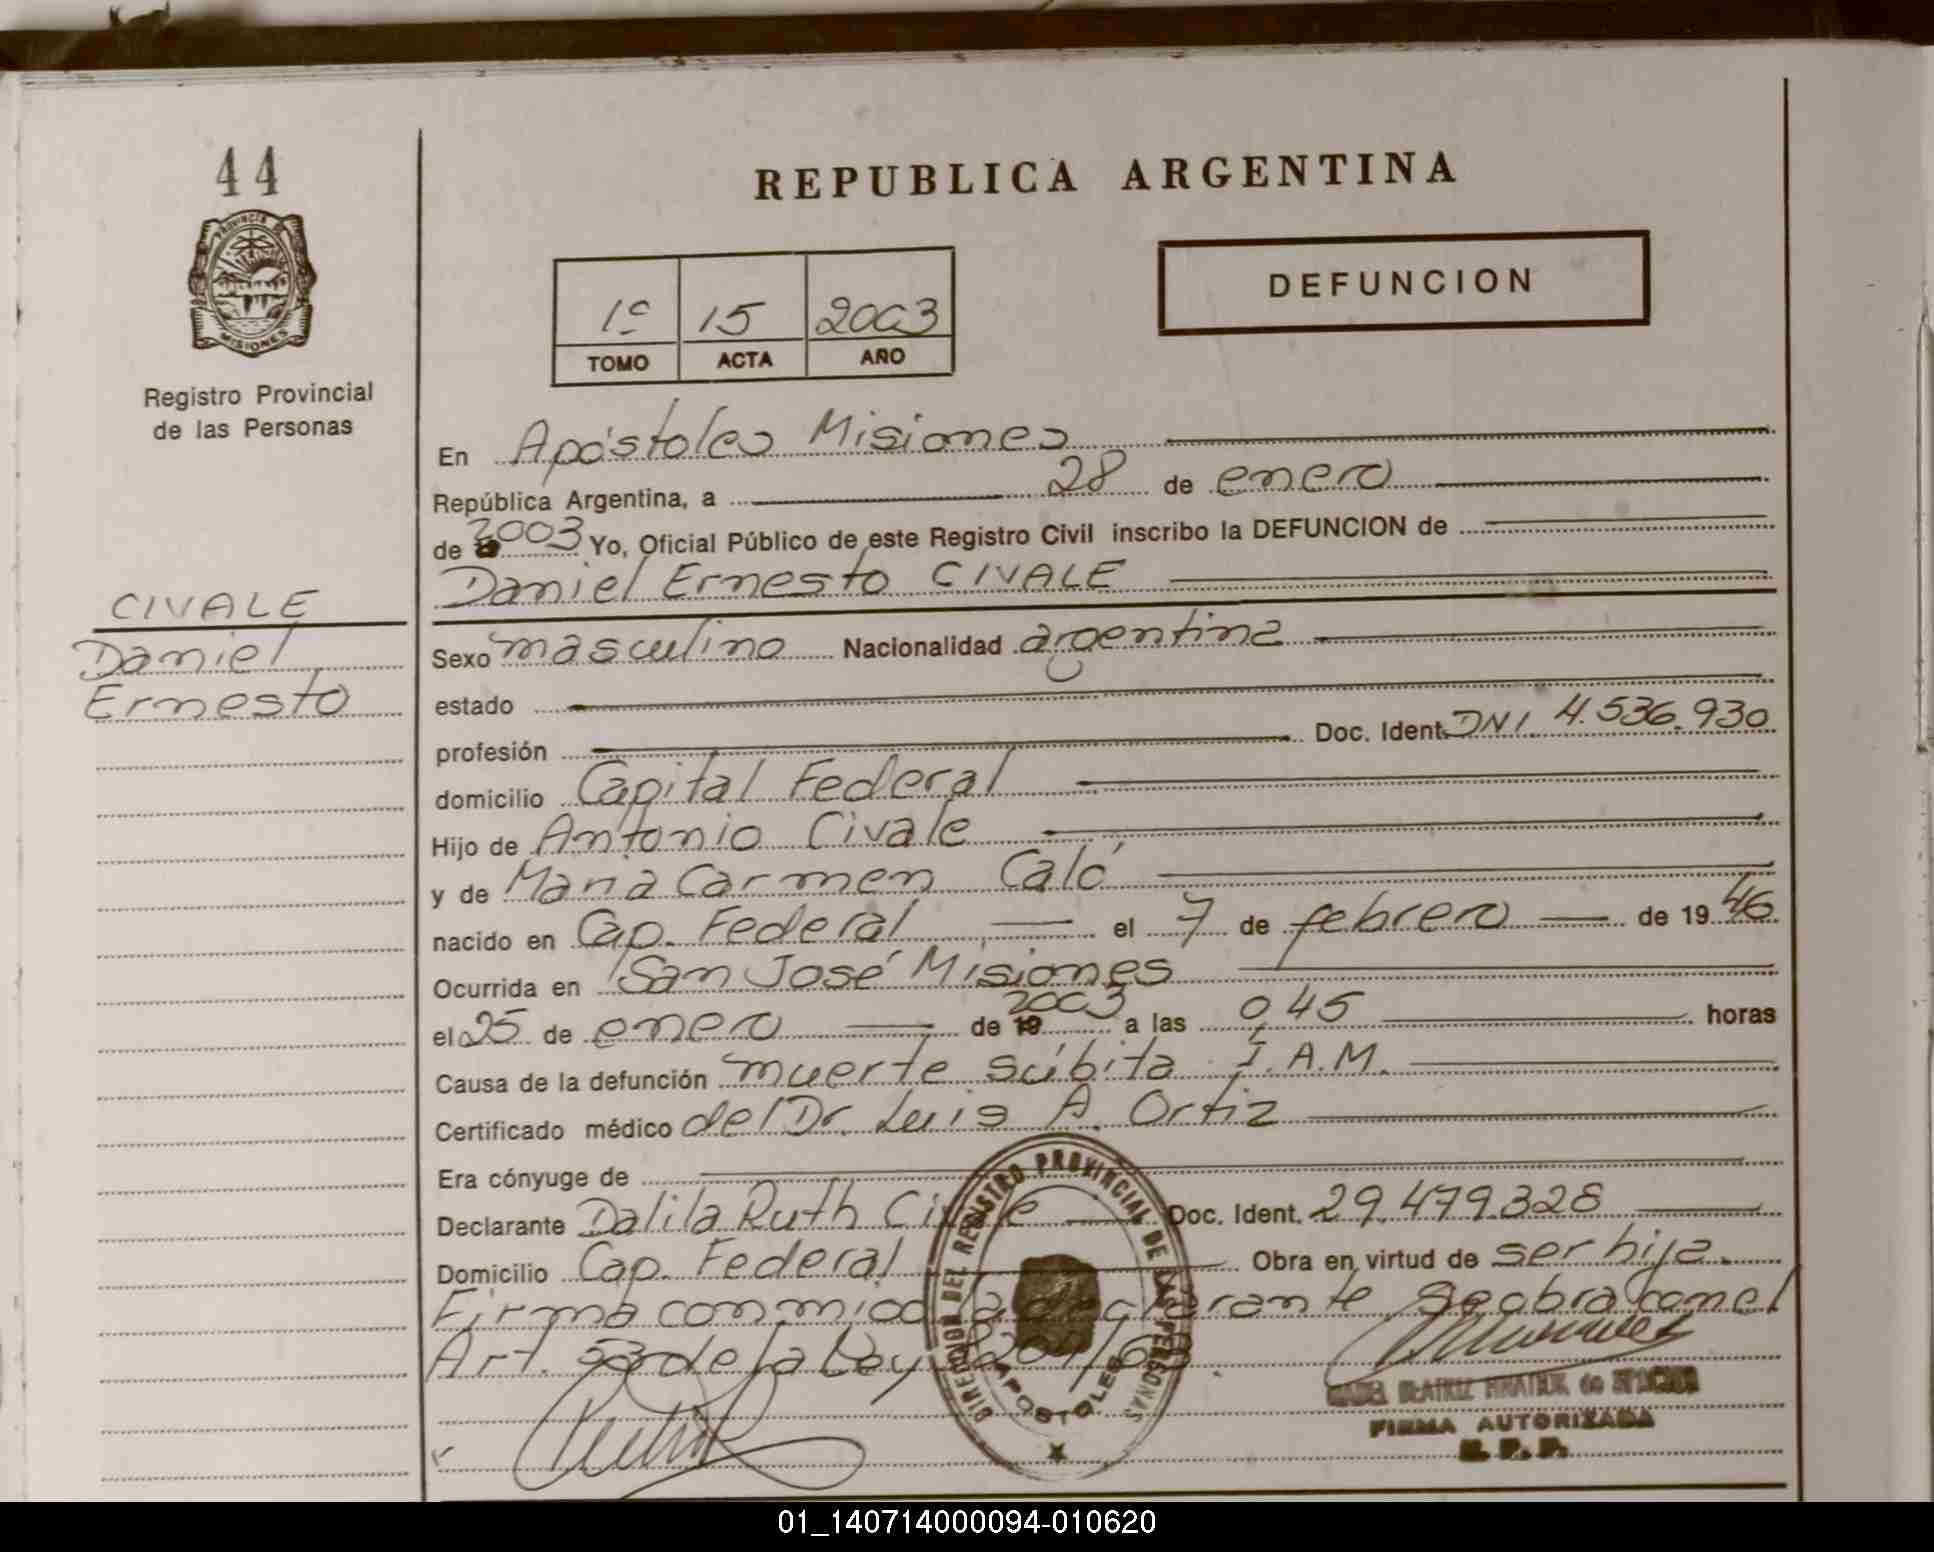 44
PROVINCIA DE
MISIONES
Registro Provincial
de las Personas
CIVALE
Daniel
Ernesto
REPUBLICA ARGENTINA
1º 15 2003
TOMO ACTA AÑO
DEFUNCION
En Apóstoles Misiones
República Argentina, a 28 de enero
de 2003 Yo, Oficial Público de este Registro Civil inscribo la DEFUNCION de
Daniel Ernesto CIVALE
Sexo masculino Nacionalidad argentina
estado
profesión Doc. Ident. DNI. 4.536.930
domicilio Capital Federal
Hijo de Antonio Civale
y de Maria Carmen Caló
nacido en Cap. Federal el 7 de febrero de 1946
Ocurrida en San José Misiones
el 25 de enero de 2003 a las 0,45 horas
Causa de la defunción muerte súbita I.A.M.
Certificado médico del Dr. Luis A. Ortiz
Era cónyuge de
Declarante Dalila Ruth Civale Doc. Ident. 29.479.328
Domicilio Cap. Federal Obra en virtud de ser hija.
Firma conmigo la declarante Se obra con el
Art. 53 de la Ley
DIRECCION DEL REGISTRO PROVINCIAL DE LAS PERSONAS
APOSTOLES
BEATRIZ de
FIRMA AUTORIZADA
R. P. P.
01_140714000094-010620